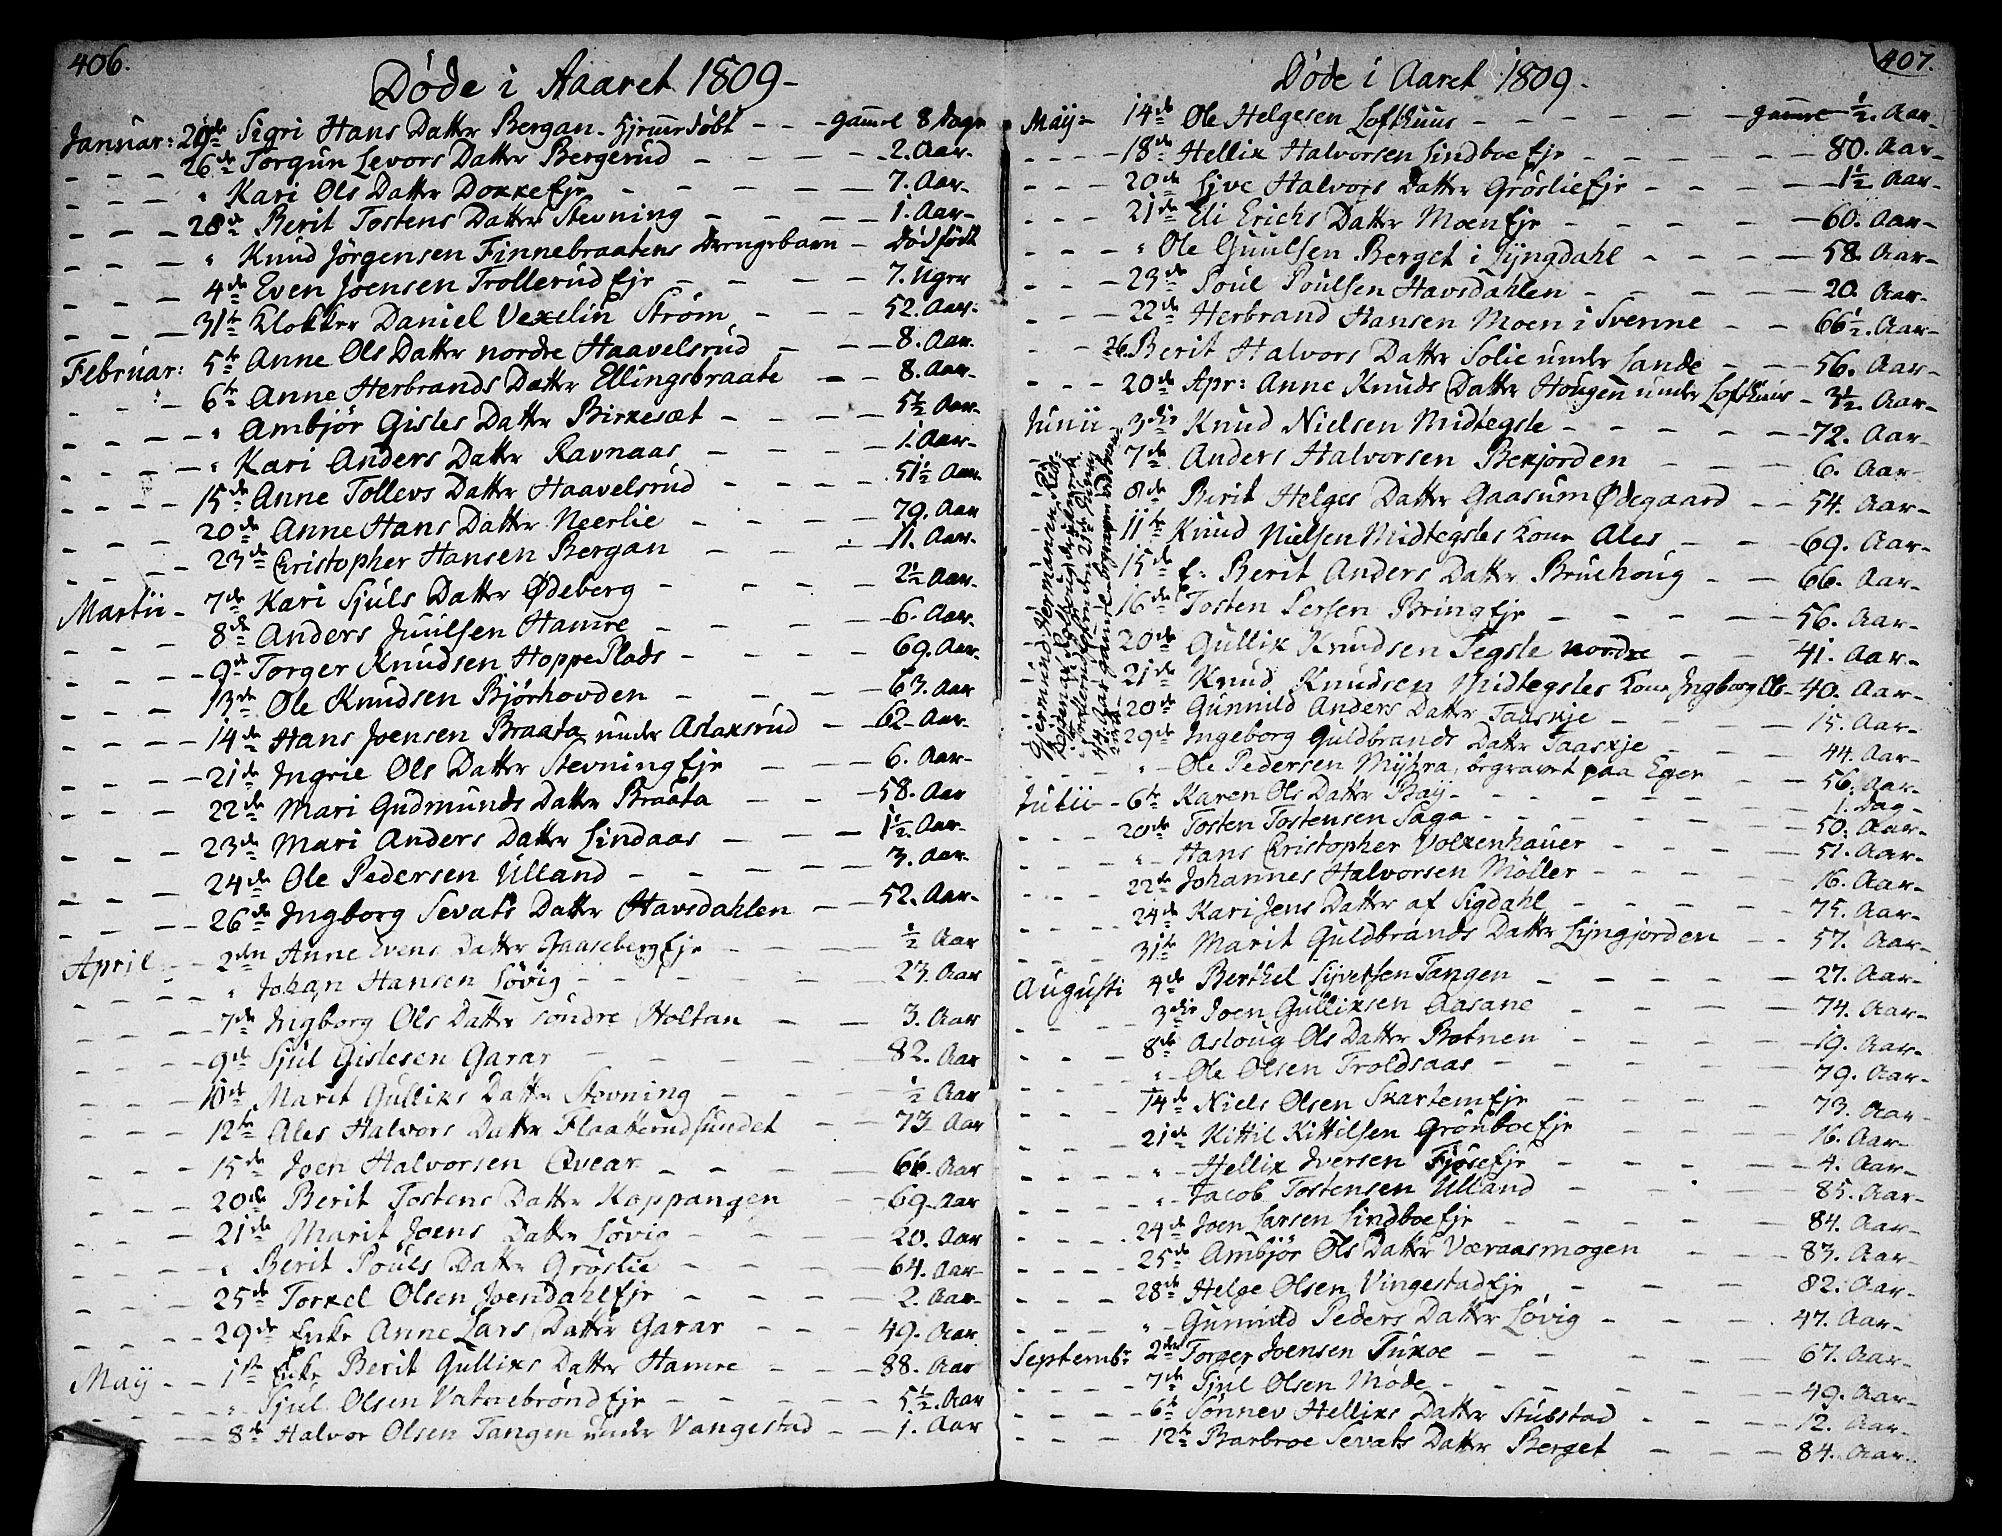 406.
Døde i Aaaret 1809-
Januar: 20de Sigri Hans Datter Bergan. hjemedøbt - - - gamel 8 Dage
- - - 26de Torgun Levors Datter Bergerud - - - - 2. Aar-
- - - " Kari Ols Datter Dokkeeje - - - - 7. Aar-
- - - 28de Berit Tostens Datter Stevning - - - - 1. Aar-
- - - " Knud Jørgensen Finnebraatens Drengebarn - Død født
- - - 4de Even Joensen Trollerud Eje - - - - 7. Uger
- - - 31te Klokker Daniel Vexelin Strøm - - - 52. Aar-
Februar: 5te Anne Ols Datter nordre Haavelsrud - - - 8. Aar
- - - 6te Anne Herbrands Datter Ellingsbraate - - 8. Aar-
- - - " Ambjør Gisles Datter Birkesæt - - - 5½ Aar-
- - - " Kari Anders Datter Ravnaas - - - - 1. Aar-
- - - 15de Anne Tollevs Datter Haavelsrud - - - 51½ Aar-
- - - 20de Anne Hans Datter Neerlie - - - - 79. Aar
- - - 23de Christopher Hansen Bergan - - - 11. Aar-
Martii - 7de Kari Sjuls Datter Ødeberg - - - - 2½ Aar-
- - - 8de Anders Juulsen Hamre - - - - 6. Aar-
- - - 9de Torger Knudsen Hoppe Plads - - - - 69. Aar-
- - - 13de Ole Knudsen Bjørhovden - - - - 63. Aar
- - - 14de Hans Joensen Braata under Aslaksrud - 62 Aar-
- - - 21de Ingrie Ols Datter Stevning Eje - - - 6. Aar-
- - - 22de Mari Gudmunds Datter Braata - - - 58. Aar
- - - 23de Mari Anders Datter Lindaas - - - 1½ Aar-
- - - 24de Ole Pedersen Ulland - - - - 3. Aar-
- - - 26de Ingborg Sevats Datter Havsdahlen - - 52. Aar-
April - - 2den Anne Evens Datter Gaaseberg Eje - - - ½ Aar
- - - " Johan Hansen Løvig - - - - 23. Aar
- - - 7de Ingborg Ols Datter søndre Holtan - - 3. Aar
- - - 9de Sjul Gislesen Garar - - - - 82. Aar
- - - 10de Marit Gulliks Datter Stevning - - - ½ Aar
- - - 12te Ales Halvors Datter Flaatterudsundet - - 73 Aar
- - - 15de Joen Halvorsen Qvear - - - - 66. Aar
- - - 20de Berit Tostens Datter Koppangen - - 69. Aar
- - - 21de Marit Joens Datter Løvig - - - 20. Aar
- - - " Berit Pouls Datter Grøslie - - - - 64. Aar-
- - - 25de Torkel Olsen Joendahl Eje - - - - 2. Aar-
- - - 29de Enke Anne Lars Datter Garar - - - 49. Aar
May - - 1ste Enke Berit Gulliks Datter Hamre - - - 88. Aar
- - - " Sjul Olsen Vatnebrønd Eje - - - - 5½. Aar
- - - 8de Halvor Olsen Tangen under Vangestad - - 1. Aar
407.
Døde i Aaret 1809-
May- 14de Ole Helgesen Lofthuus - - - - - - gamel ½. Aar-
- - - 18de Hellik Halvorsen Lindboe Eje - - - - - 80. Aar-
- - - 20de Live Halvors Datter Grøslie Eje - - - - 1½ Aar-
- - - 21de Eli Erichs Datter Moen Eje - - - - - 60. Aar-
- - - " Ole Guulsen Berget i Lyngdahl - - - - 58. Aar-
- - - 23de Poul Poulsen Havsdahlen - - - - 20. Aar-
- - - 22de Herbrand Hansen Moen i Svenne - - 66½. Aar-
- - - 26. Berit Halvors Datter Solie under Lande - - 56. Aar-
- - - 20de Apr: Anne Knuds Datter Hougen under Lofthuus - 3½. Aar-
Junii - 3die Knud Nielsen Midtegsle - - - - - 72. Aar-
- 7de Anders Halvorsen Bekjorden - - - - 6. Aar-
- 8de Berit Helges Datter Gaasum Ødegaard - - 54. Aar-
- 11te Knud Nielsen Midtegsles Kone Ales - - 69. Aar-
- 15de E: Berit Anders Datter Bruehoug - - 66. Aar-
- 16de Tosten Larsen Bring Eje - - - - - 56. Aar-
- 20de Gullik Knudsen Tegsle nordre - - - 41. Aar-
- 21de Knud Knudsen Midtegsles Kone Ingborg Ols - 40. Aar-
- 20de Gunnild Anders Datter Taaskje - - - 15. Aar-
- 29de Ingeborg Guldbrands Datter Taaskje - - 44. Aar-
- - - " Ole Pedersen Myhra, begravet paa Eger - - 56. Aar-
Julii - 6te Karen Ols Datter Bay - - - - - 1. Dag-
- - - 20de Tosten Tostensen Saga - - - - - 50. Aar-
- - - " Hans Christopher Volkenhauer - - - - 51. Aar-
- - - 22de Johannes Halvorsen Møller - - - - 16. Aar-
- - - 24de Kari Jens Datter af Sigdahl - - - - 75. Aar-
- - - 31te Marit Guldbrands Datter Lyngjorden - - 57. Aar-
Augusti 4de Berthel Syvertsen Tangen - - - - 27. Aar-
- - - 3die Joen Gulliksen Aasane - - - - 74. Aar-
- - - 8de Asloug Ols Datter Botnen - - - - 19. Aar-
- - - " Ole Olsen Troldsaas - - - - 79. Aar-
- - - 14de Niels Olsen Skartem Eje - - - - 73. Aar-
- - - 21de Kittil Kittilsen Grønboe Eje - - - - 16. Aar-
- - - " Hellik Iversen Fjøse Eje - - - - 4. Aar-
- - - " Jacob Tostensen Ulland - - - - 85. Aar-
- - - 24de Joen Larsen Lindboe Eje - - - - 84. Aar-
- - - 25de Ambjør Ols Datter Væraasmogen - - - 83. Aar-
- - - 28de Helge Olsen Vingestad Eje - - - - 82. Aar-
- - - " Gunnild Peders Datter Løvig - - - - 47. Aar-
Septembr: 2den Torger Joensen Tukoe - - - - 67. Aar-
- - - 7de Sjul Olsen Møde - - - - - 49. Aar-
- - - 6te Sønnev Helliks Datter Stubstad - - - 12. Aar-
- - - 12te Barbroe Sevats Datter Berget - - - 84. Aar-